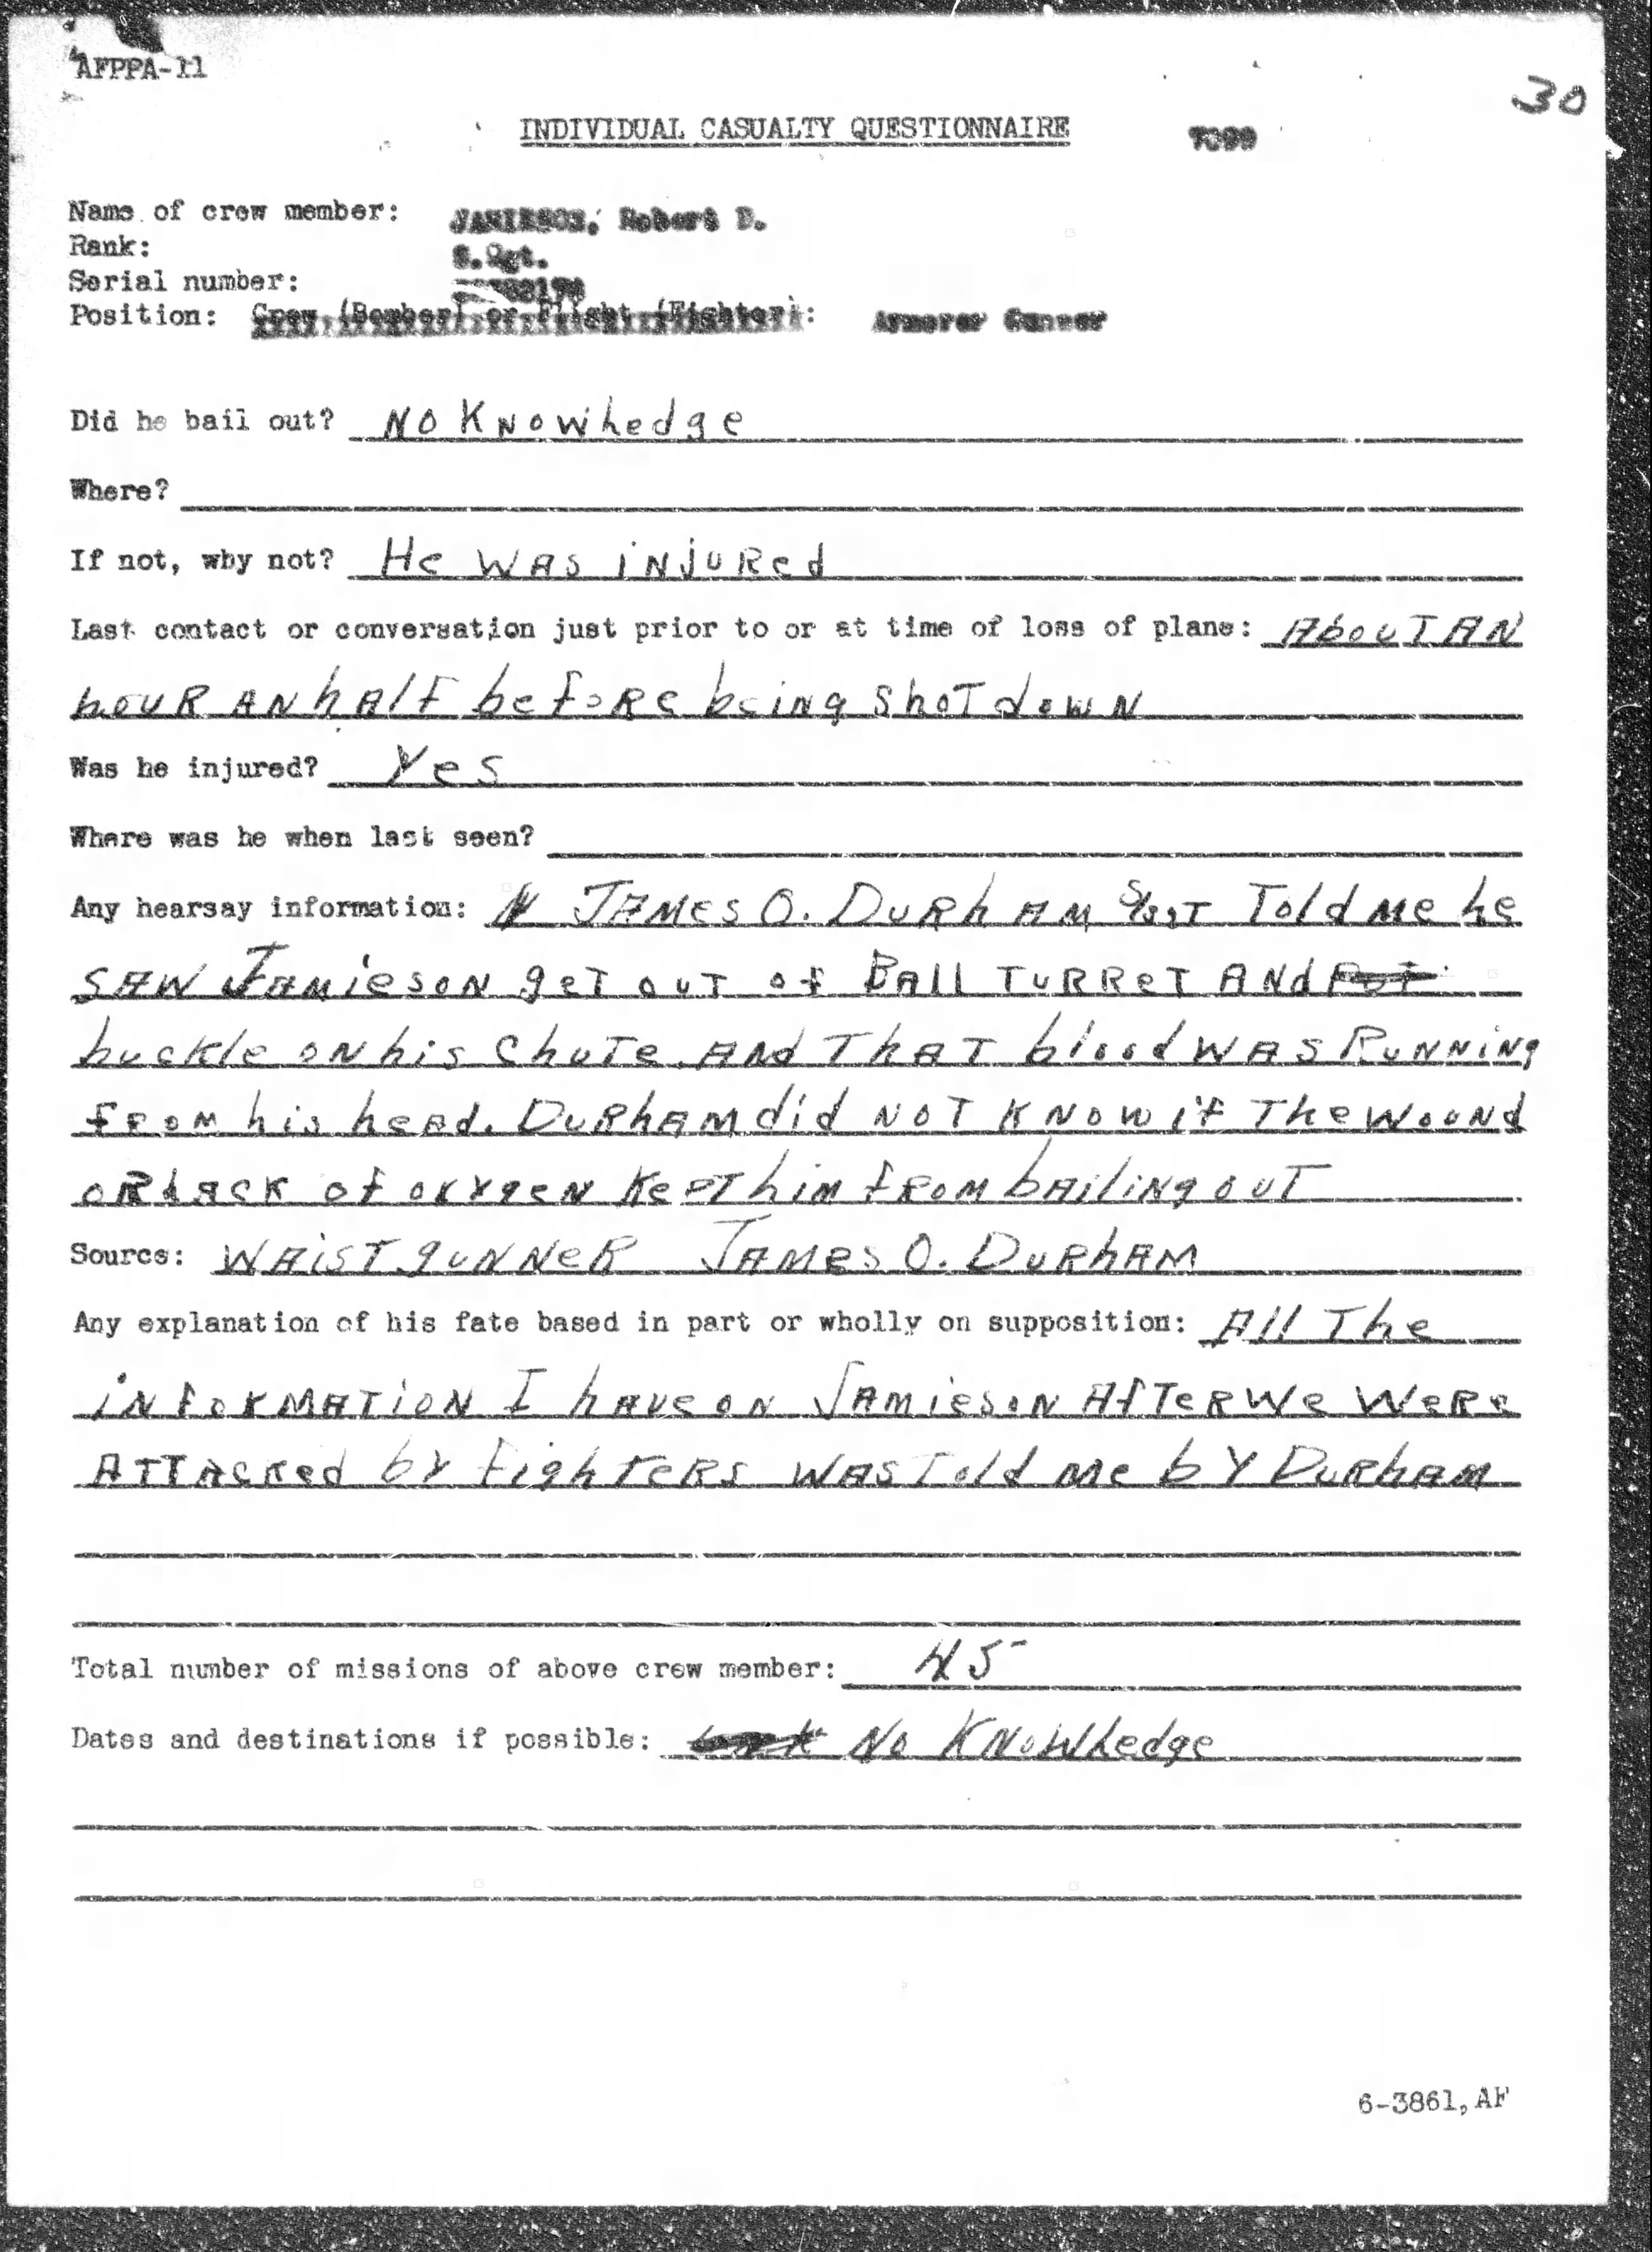 AFPPA-11
30
INDIVIDUAL CASUALTY QUESTIONNAIRE 7099
Name of crew member: JAMIESON, Robert D.
Rank: S.Sgt.
Serial number:
Position: Crew (Bomber) or Flight (Fighter): Armorer Gunner
Did he bail out? NO KNowhedge
Where?
If not, why not? He WAS iNjuRed
Last contact or conversation just prior to or at time of loss of plane: AbouT AN
houR AN hAlf befoRe being ShoT dowN
Was he injured? Yes
Where was he when last seen?
Any hearsay information: JAMes O. DuRhAM S/SgT Told me he
SAW JAmiesoN geT ouT of BAll TuRReT ANd
buckle oN his ChuTe. ANd ThAT blood WAS RuNNiNg
fRoM his heAd. DuRhAM did NoT KNow if The WouNd
oR lAck of oxygeN KepT him fRoM bAiliNg ouT
Source: WAiST guNNeR JAMes O. DuRhAM
Any explanation of his fate based in part or wholly on supposition: All The
iNfoRMATioN I hAve oN JAmiesoN AfTeR We WeRe
ATTAcked by FighTeRs WAS Told me by DuRhAM
Total number of missions of above crew member: 45
Dates and destinations if possible: No KNowhedge
6-3861, AF